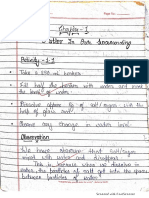 Page No.
Chapter - 1
Matter In Our Surrounding
Activity - 1.1
• Take a 100 ml beaker
• Fill half the beaker with water and mark the level of water
• Dissolve some of salt/sugar with the help of glass rod
• Observe any change in water level
Observation
We have observe that salt/sugar mixed with water and disappeared
This is because when we dissolve in water, the particles of salt get into the spaces between particles of water
Scanned with CamScanner